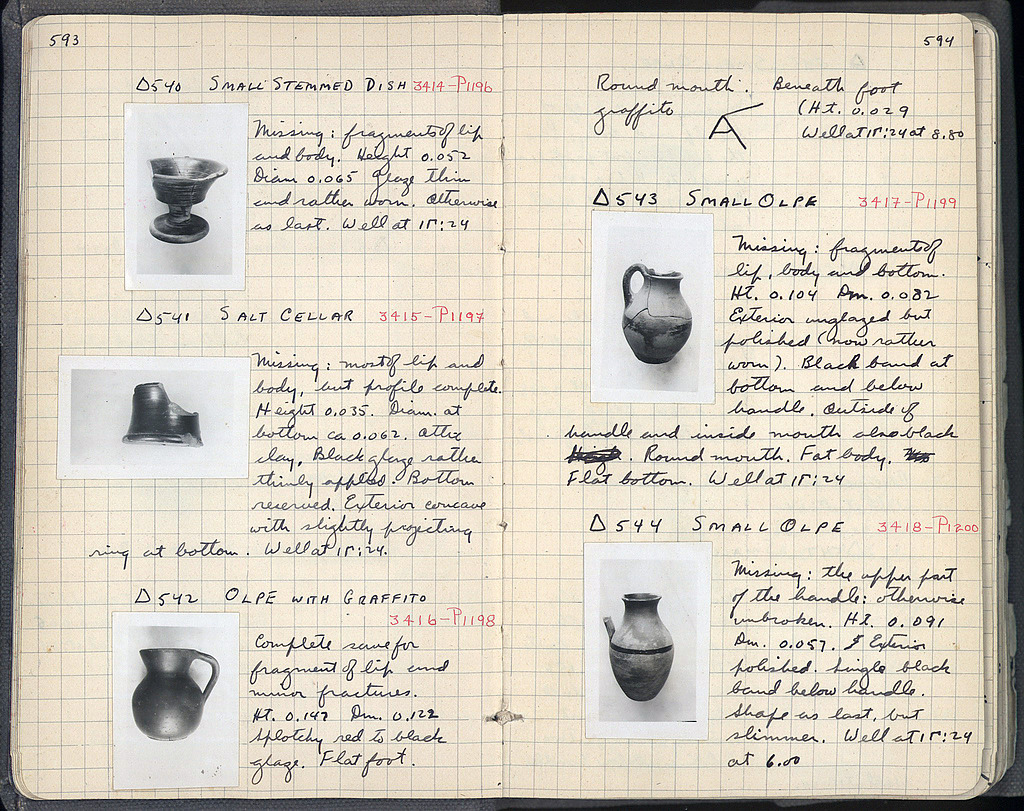 593
Δ540 SMALL STEMMED DISH 3414-P1196
Missing: fragments of lip
and body. Height 0.052
Diam 0.065 Glaze thin
and rather worn. Otherwise
as last. Well at 1Γ:24
Δ541 SALT CELLAR 3415-P1197
Missing: most of lip and
body, but profile complete.
Height 0.035. Diam. at
bottom ca 0.062. Attic
clay. Black glaze rather
thinly applied. Bottom
reserved. Exterior concave
with slightly projecting
ring at bottom. Well at 1Γ:24.
Δ542 OLPE WITH GRAFFITO
3416-P1198
Complete save for
fragment of lip and
minor fractures.
Ht. 0.147 Dm. 0.122
Splotchy red to black
glaze. Flat foot.
594
Round mouth. Beneath foot
graffito A (Ht. 0.029
Well at 1Γ:24 at 8.80
Δ543 SMALL OLPE 3417-P1199
Missing: fragments of
lip, body and bottom.
Ht. 0.104 Dm. 0.082
Exterior unglazed but
polished (now rather
worn). Black band at
bottom and below
handle. Outside of
handle and inside mouth also black
. Round mouth. Fat body.
Flat bottom. Well at 1Γ:24
Δ544 SMALL OLPE 3418-P1200
Missing: the upper part
of the handle: otherwise
unbroken. Ht. 0.091
Dm. 0.057. Exterior
polished. Single black
band below handle.
Shape as last, but
slimmer. Well at 1Γ:24
at 6.00